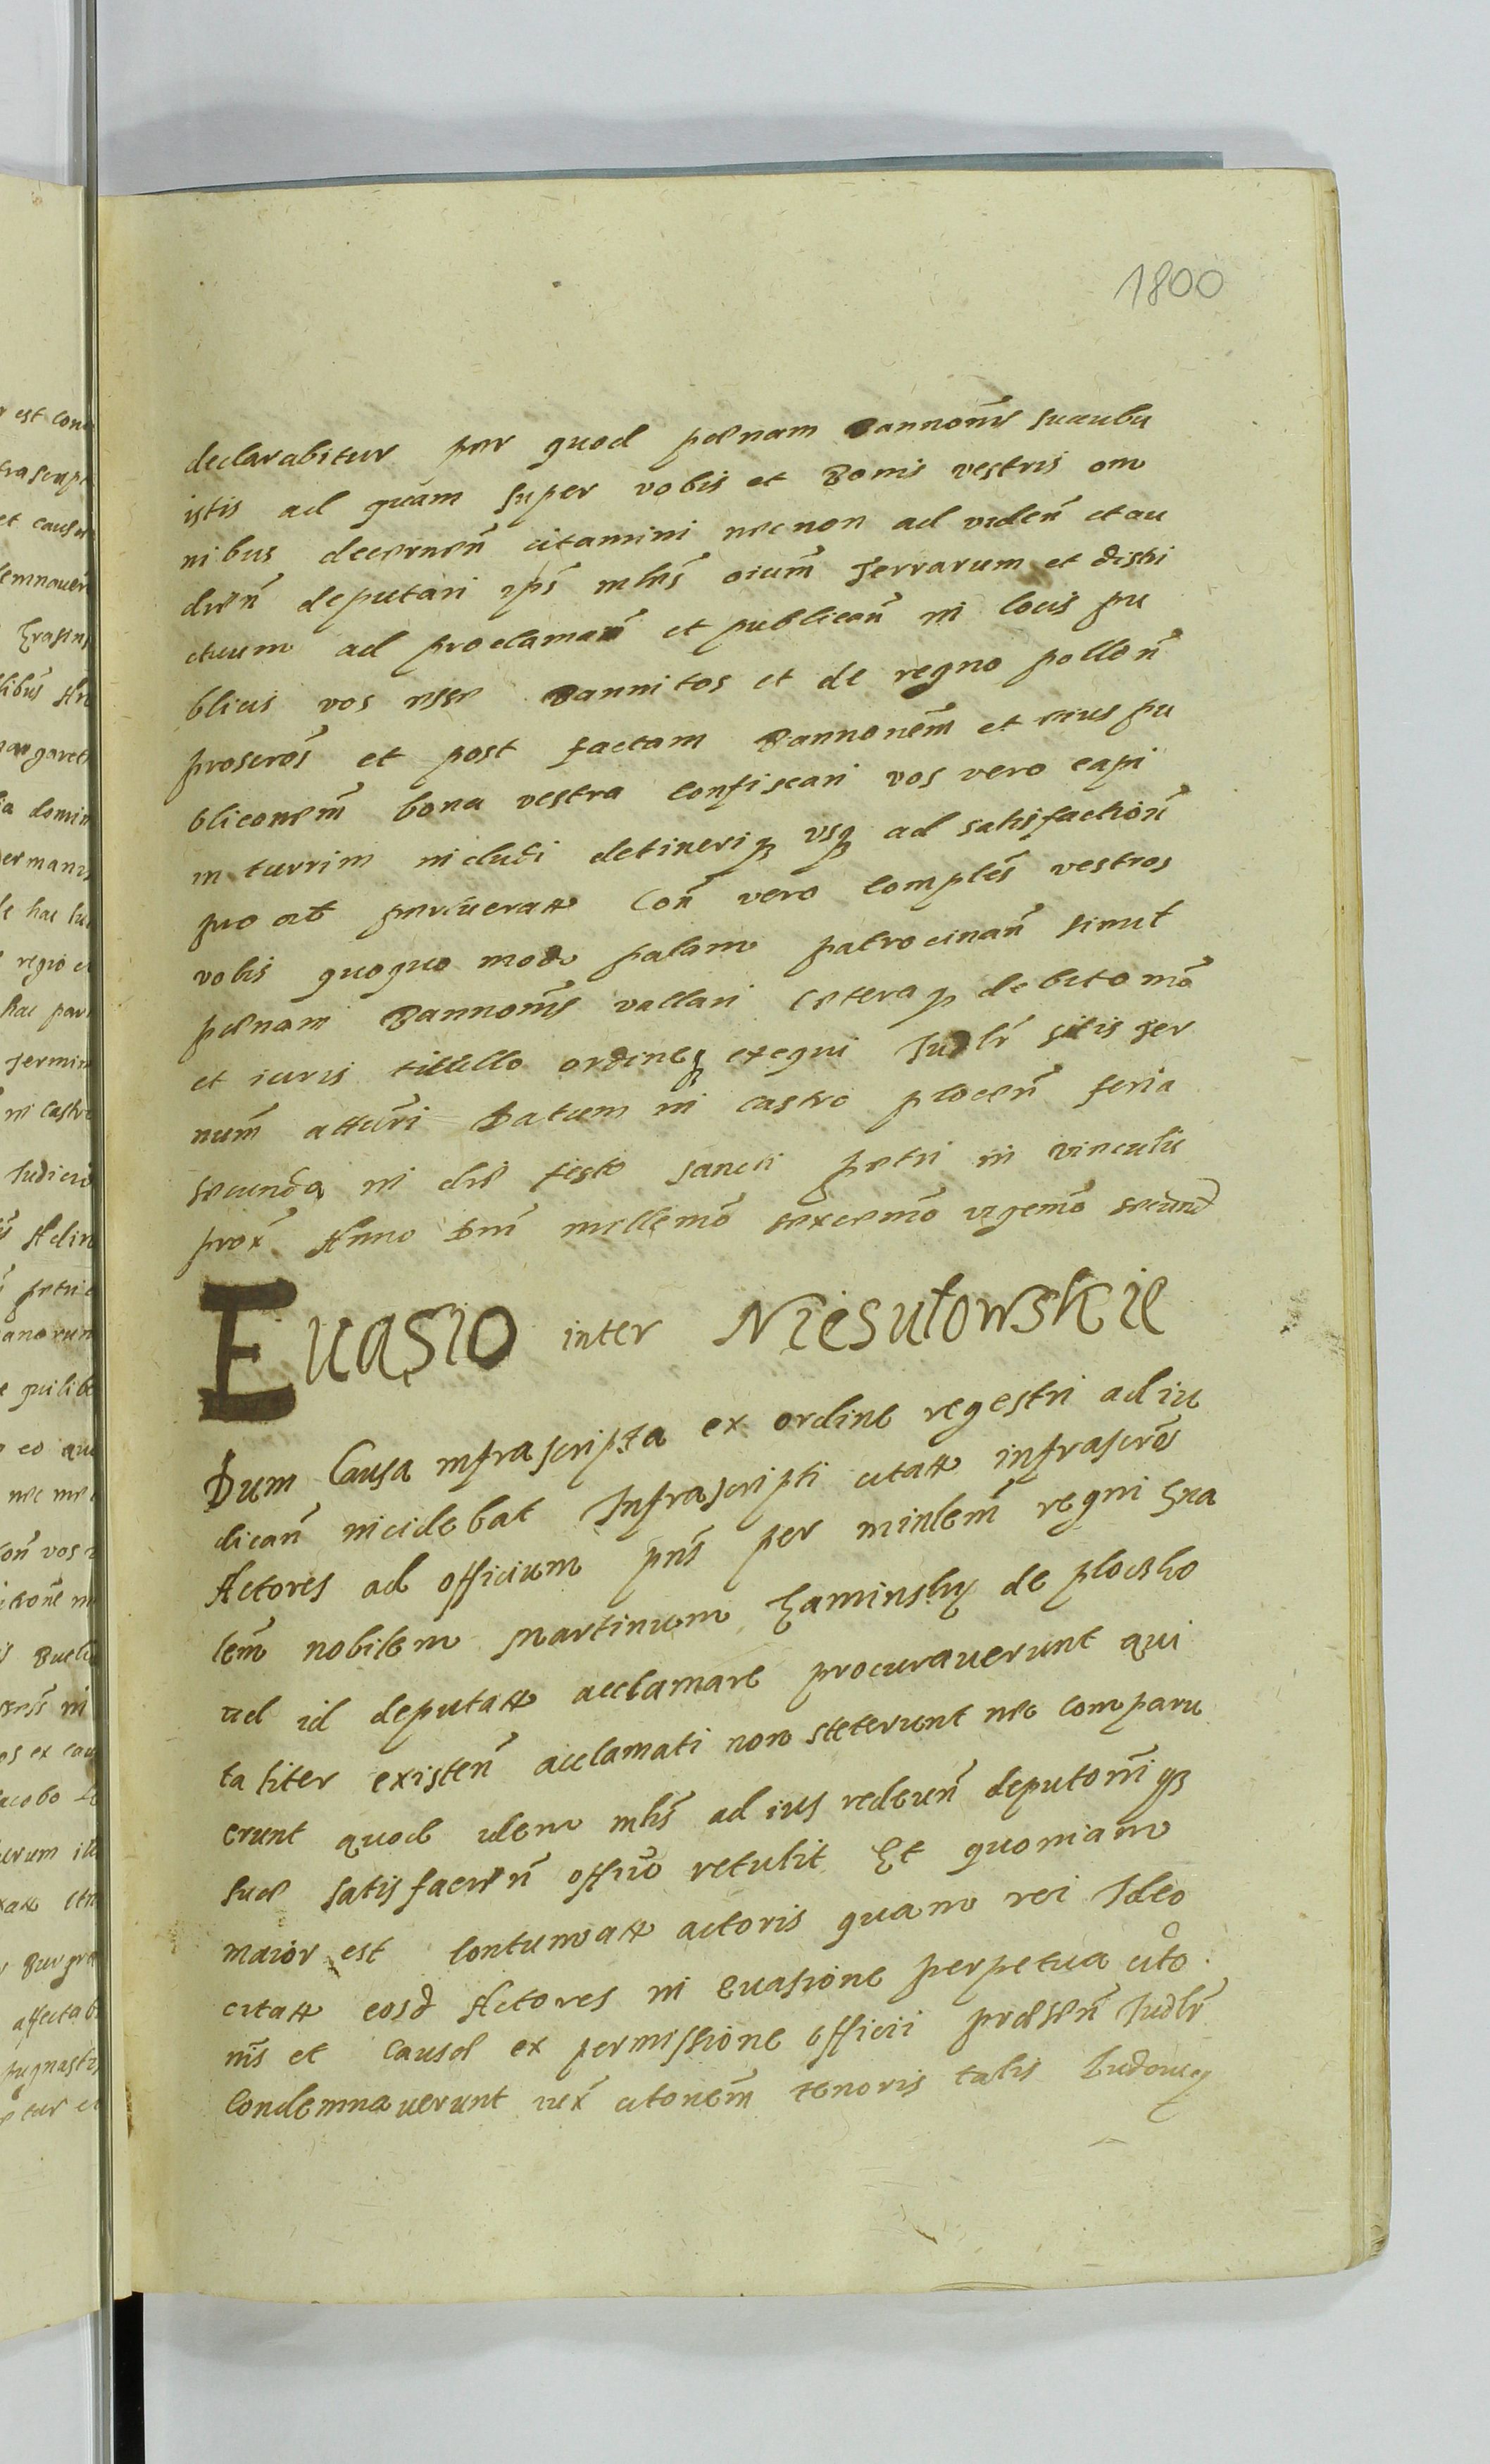 1800
declarabitur per quod pœnam Bannonis sucubu
istis ad quam super vobis et Bonis vestris om
nibus decernen̄ citamini necnon ad viden̄ et au
dien̄ deputari ips̄ mlis̄ oium̄ Terrarum et distri
ctuum ad proclaman̄ et publican̄ in locis pu
blicis vos esse Bannitos et de regno pollon̄
proscros̄ et post factam Bannonem̄ et eius pu
bliconem̄ bona vestra confiscari vos vero capi
in turrim includi detineriqꝫ vsqꝫ ad satisfaction̄
quo ad Con̄ vero comples̄ vestros
vobis quoquo modo palam patrocinan̄ simul
pœnam Bannonis vallari Cæteraqꝫ debito mō
et iuris titullo ordineqꝫ exequi Judlr̄ sitis ter
num̄ atturi Datum in castro plocen̄ feria
secunda in die festo sancti petri in vinculis
prox̄ Anno Dni millemō sexcemō vigemō secund
Euasio inter Niesułowskie
Dum Causa infrascripta ex ordine regestri ad iu
dican̄ incidebat Infrascripti citatt infrascrōs
Actores ad officium pns̄ per minlem̄ regni gna
lem̄ nobilem Martinum Kaminsky de plocsko
ad id deputatt acclamare procurauerunt qui
taliter existen̄ acclamati non steterunt nec comparu
erunt quod idem mlis̄ ad ius redeun̄ deputoniqꝫ
suæ satisfacien̄ offiō retulit Et quoniam
maior est contumatt actoris quam rei Ideo
citatt eosd Actores in euasione perpetua cito
nis̄ et causæ ex permissione officii præsen̄ Judlr̄
Condemnauerunt iux̄ citonem̄ tenoris talis Ludouig